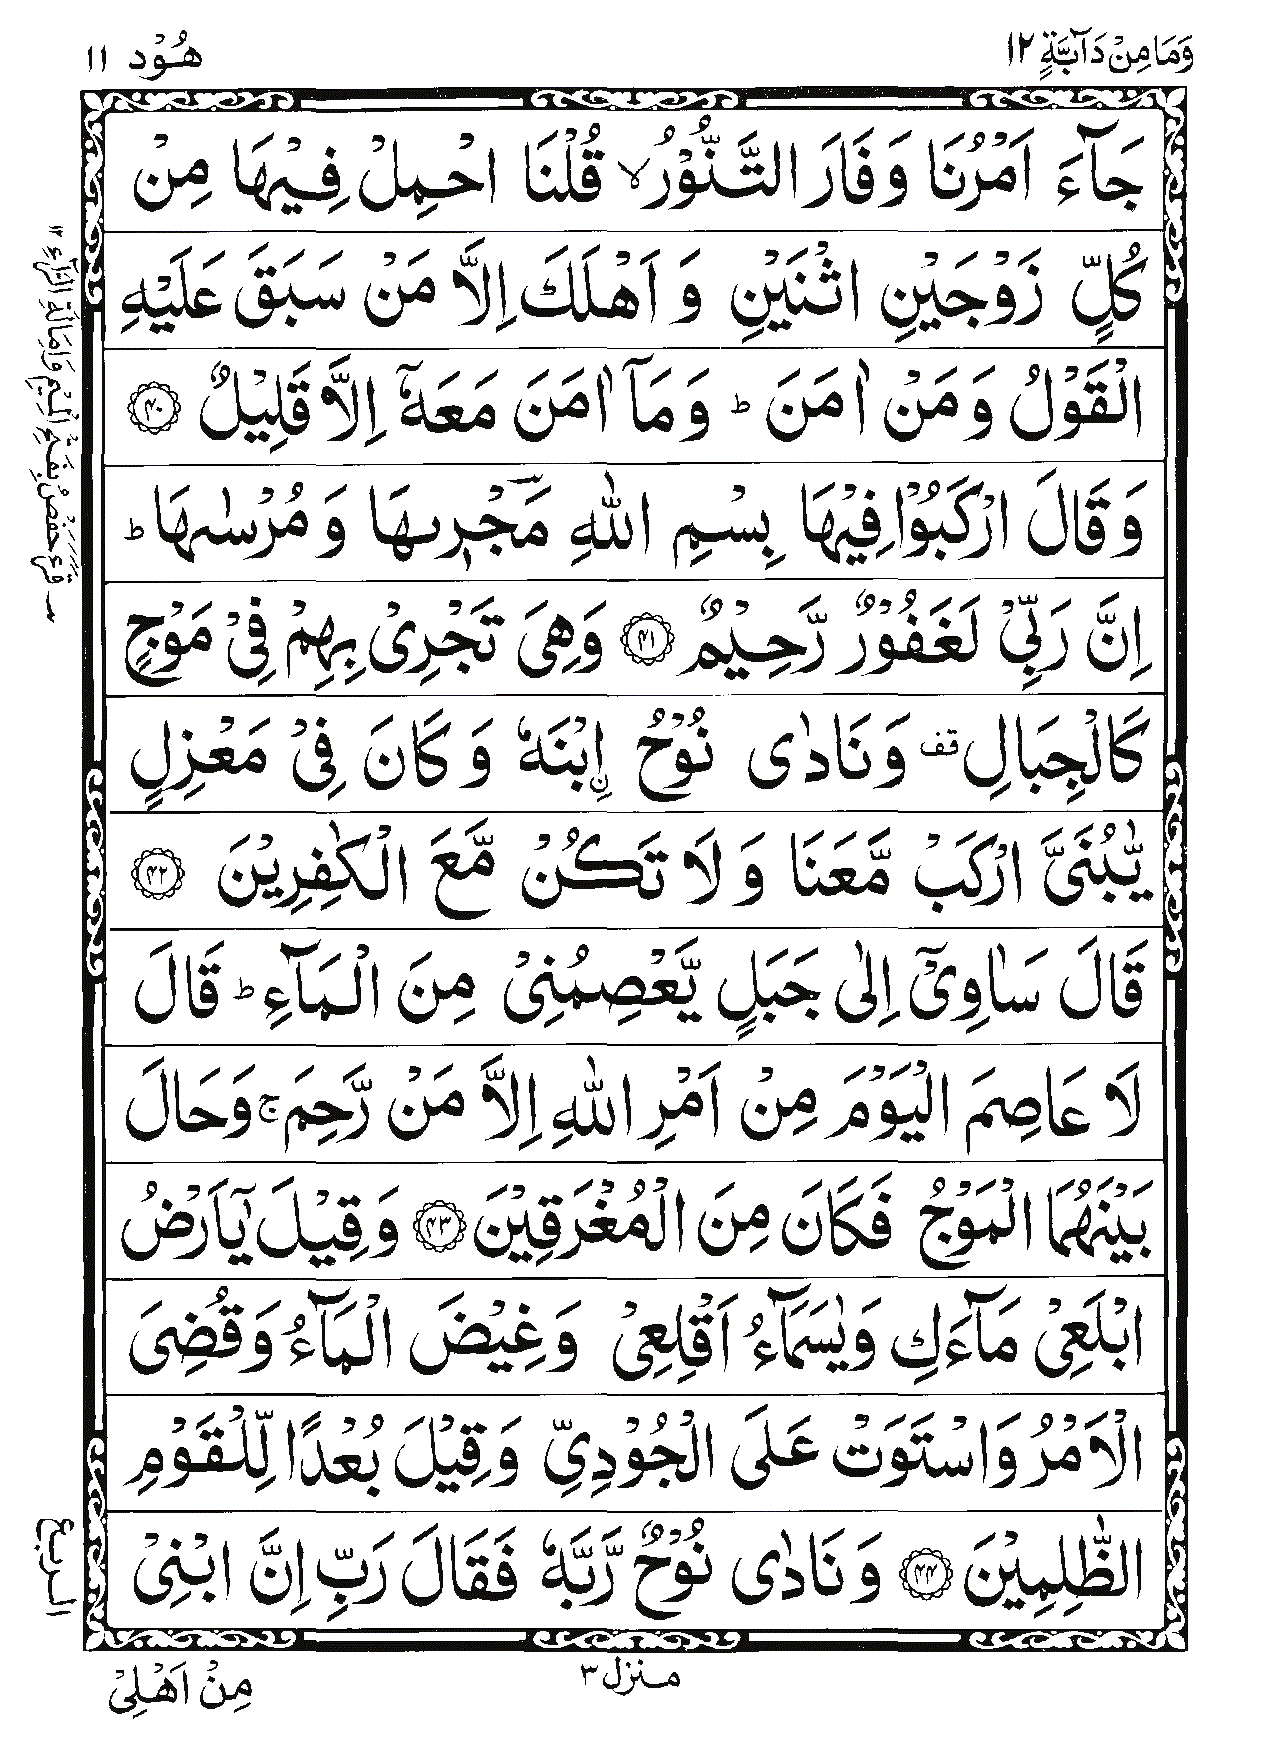 وَمَا مِنْ دَآبَّةٍ ١٢
هُوْد ١١
جَآءَ اَمْرُنَا وَفَارَ التَّنُّوْرُ ۙ قُلْنَا احْمِلْ فِيْهَا مِنْ
كُلٍّ زَوْجَيْنِ اثْنَيْنِ وَ اَهْلَكَ اِلَّا مَنْ سَبَقَ عَلَيْهِ
الْقَوْلُ وَ مَنْ اٰمَنَ ؕ وَ مَاۤ اٰمَنَ مَعَهٗۤ اِلَّا قَلِيْلٌ ﴿۴۰﴾
وَ قَالَ ارْكَبُوْا فِيْهَا بِسْمِ اللّٰهِ مَجْؔرٖىهَا وَ مُرْسٰىهَا ؕ
اِنَّ رَبِّيْ لَغَفُوْرٌ رَّحِيْمٌ ﴿۴۱﴾ وَهِيَ تَجْرِيْ بِهِمْ فِيْ مَوْجٍ
كَالْجِبَالِ قف وَنَادٰى نُوْحُ اۨبْنَهٗ وَ كَانَ فِيْ مَعْزِلٍ
يّٰبُنَيَّ ارْكَبْ مَّعَنَا وَ لَا تَكُنْ مَّعَ الْكٰفِرِيْنَ ﴿۴۲﴾
قَالَ سَاٰوِيْۤ اِلٰى جَبَلٍ يَّعْصِمُنِيْ مِنَ الْمَآءِ ؕ قَالَ
لَا عَاصِمَ الْيَوْمَ مِنْ اَمْرِ اللّٰهِ اِلَّا مَنْ رَّحِمَ ۚ وَحَالَ
بَيْنَهُمَا الْمَوْجُ فَكَانَ مِنَ الْمُغْرَقِيْنَ ﴿۴۳﴾ وَ قِيْلَ يٰۤاَرْضُ
ابْلَعِيْ مَآءَكِ وَيٰسَمَآءُ اَقْلِعِيْ وَغِيْضَ الْمَآءُ وَقُضِيَ
الْاَمْرُ وَاسْتَوَتْ عَلَى الْجُوْدِيِّ وَقِيْلَ بُعْدًا لِّلْقَوْمِ
الظّٰلِمِيْنَ ﴿۴۴﴾ وَنَادٰى نُوْحٌ رَّبَّهٗ فَقَالَ رَبِّ اِنَّ ابْنِيْ
الربع
منزل ٣
مِنْ اَهْلِيْ